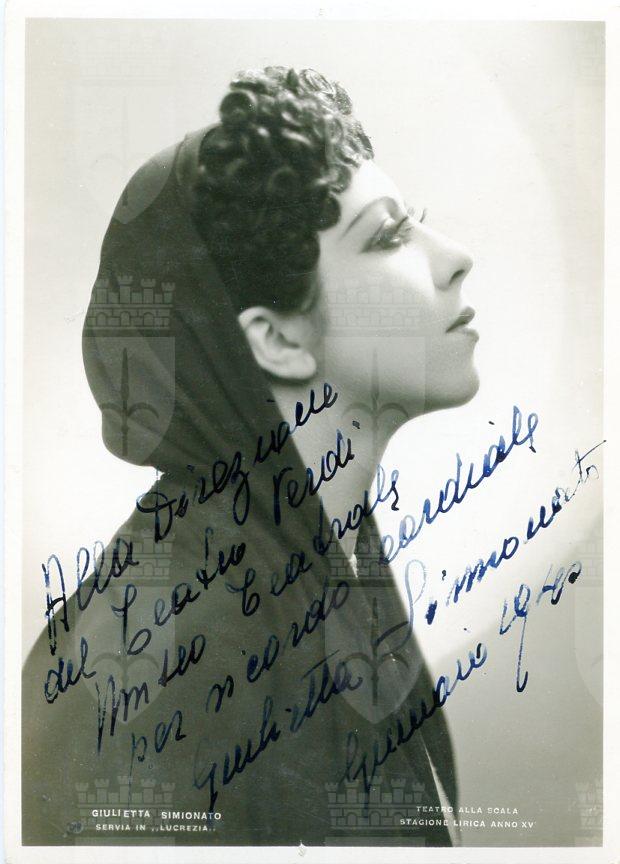 Alla Direzione
del Teatro Verdi
Museo Teatrale
per ricordo cordiale
Giulietta Simionato
Gennaio 1940
GIULIETTA SIMIONATO
SERVIA IN ,,LUCREZIA,,
TEATRO ALLA SCALA
STAGIONE LIRICA ANNO XV